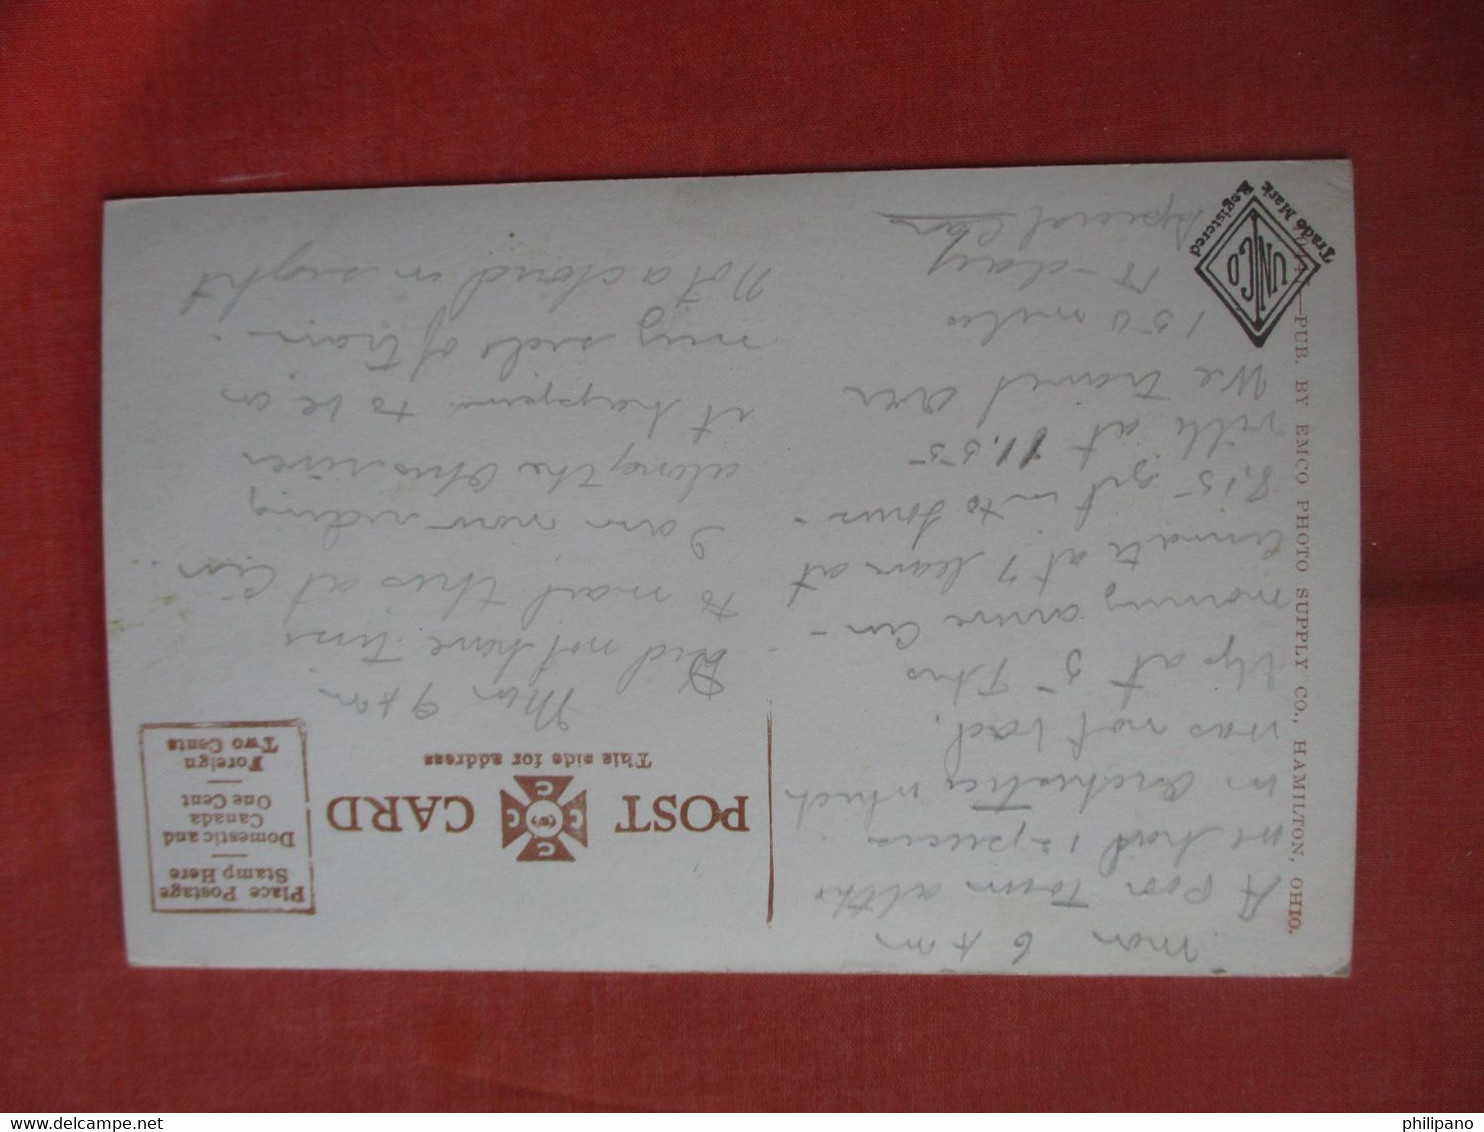 Mon 6 A m
A poor town altho
we had 12 pieces
in Orchestra which
was not bad.
Up at 5 This
morning arrive Cin-
cinnati at 7 leave at
8.15 get into Louis-
ville at 11.55
We travel over
150 miles
to-day
Special Car
POST CARD
C C C C
This side for address
Place Postage
Stamp Here
Domestic and
Canada
One Cent
Foreign
Two Cents
Mon 9 A m
Did not have time
to mail this at Cin.
I am now riding
along the Ohio river
it happens to be on
my side of train.
Not a cloud in sight
PUB. BY EMCO PHOTO SUPPLY CO., HAMILTON, OHIO.
UNICO
Trade Mark
Registered
philipano
www.delcampe.net